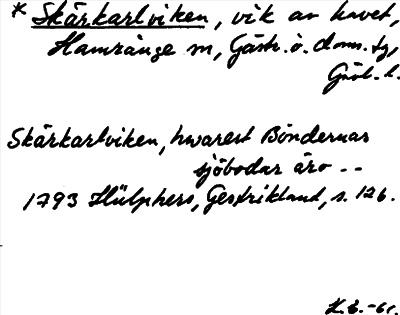 * Skärkarlviken, vik av havet,
Hamrånge sn, Gästr. ö. doms. tg,
Gävl. l.
Skärkarlviken, hwarest Böndernas
sjöbodar äro --
1793 Hülphers, Gestrikland, s. 126.